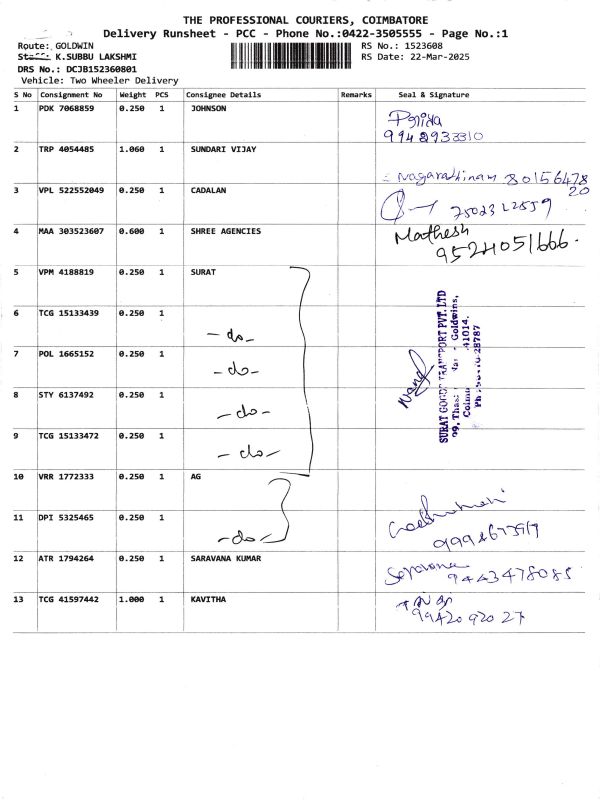 THE PROFESSIONAL COURIERS, COIMBATORE
Delivery Runsheet - PCC - Phone No.:0422-3505555 - Page No.:1
Route: GOLDWIN
RS No.: 1523608
Staff: K.SUBBU LAKSHMI
RS Date: 22-Mar-2025
DRS No.: DCJB152360801
Vehicle: Two Wheeler Delivery
S No Consignment No Weight PCS Consignee Details Remarks Seal & Signature
1 PDK 7068859 0.250 1 JOHNSON
9942933310
2 TRP 4054485 1.060 1 SUNDARI VIJAY
Nagarathinam 80156478
20
3 VPL 522552049 0.250 1 CADALAN
7502322559
4 MAA 303523607 0.600 1 SHREE AGENCIES Mathesh
9524051666.
5 VPM 4188819 0.250 1 SURAT
6 TCG 15133439 0.250 1
-do-
7 POL 1665152 0.250 1
-do-
8 STY 6137492 0.250 1
-do-
9 TCG 15133472 0.250 1
-do-
SURAT GOODS TRANSPORT PVT. LTD
99, Goldwins,
10 VRR 1772333 0.250 1 AG
11 DPI 5325465 0.250 1
-do-
12 ATR 1794264 0.250 1 SARAVANA KUMAR
9443478085
13 TCG 41597442 1.000 1 KAVITHA
9942092027